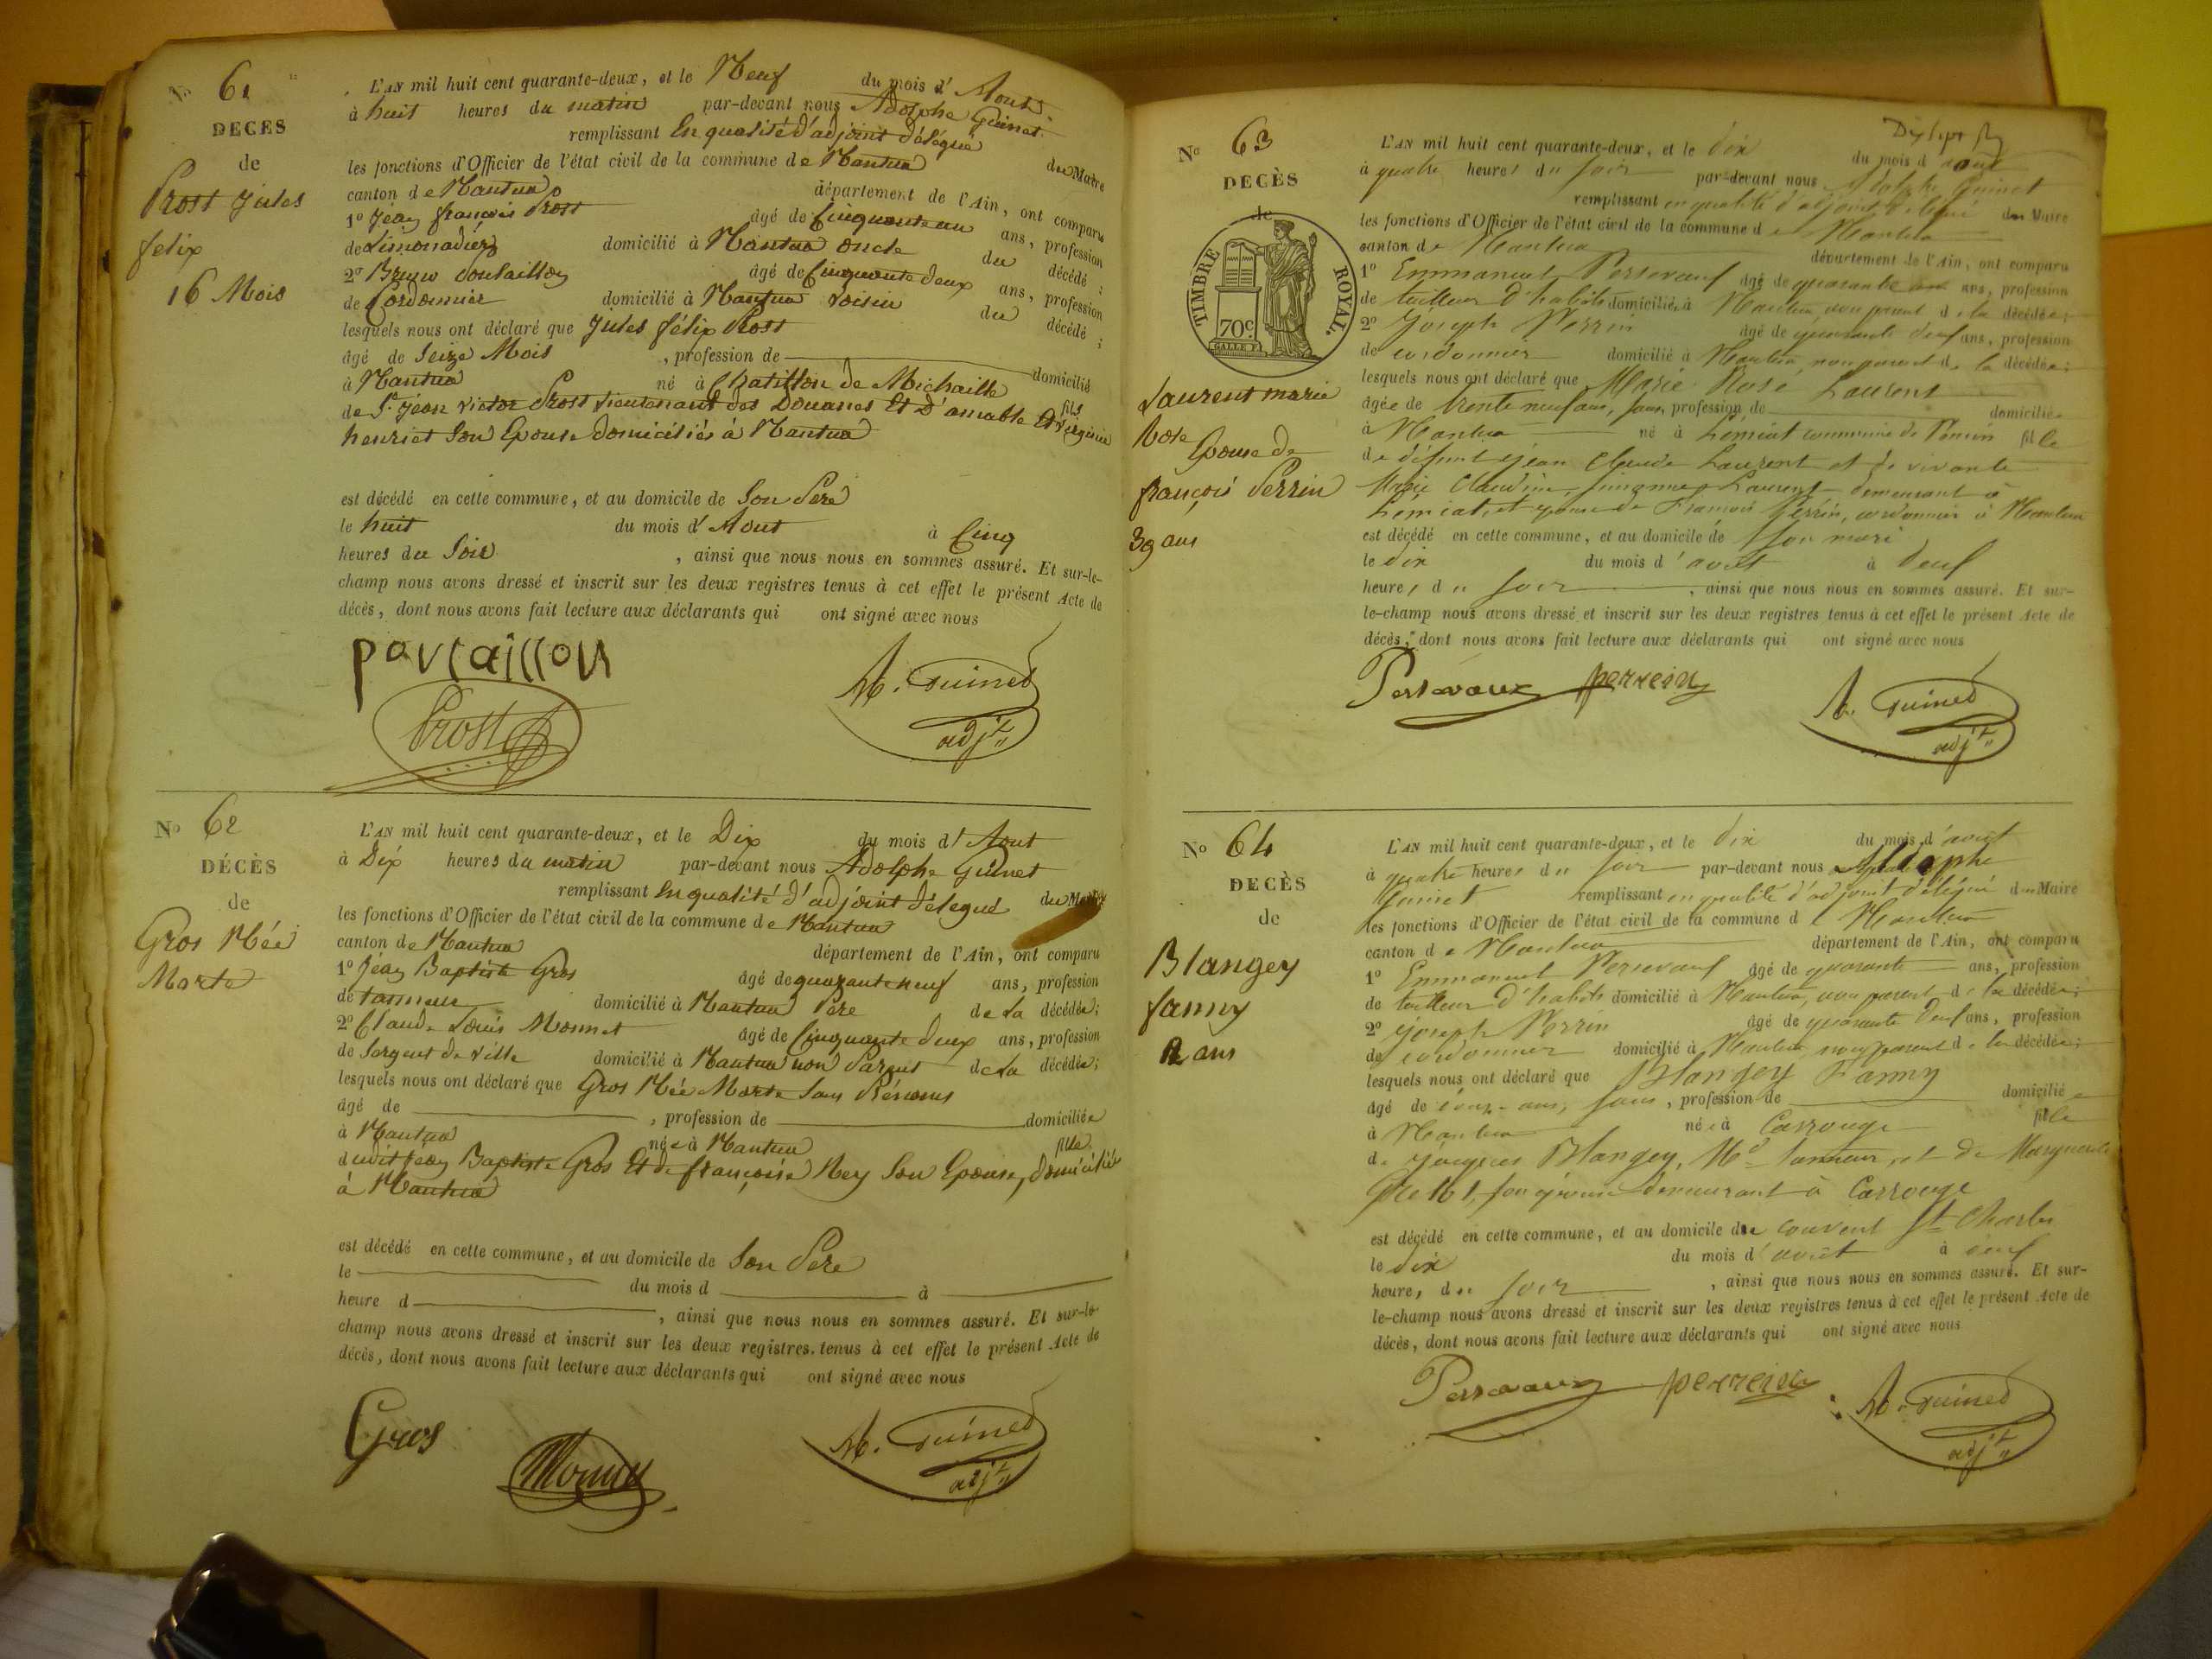 Nº 61
DECÈS
de
Prost Jules
felix
16 Mois
L'AN mil huit cent quarante-deux, et le Neuf du mois d'Aout
à huit heures du matin par-devant nous Adolphe Guinet
remplissant En qualité d'adjoint délégué du Maire
les fonctions d'Officier de l'état civil de la commune de Nantua
canton de Nantua département de l'Ain, ont comparu
1º Jean françois Prost âgé de Cinquante un ans, profession
de Limonadier domicilié à Nantua oncle du décédé ;
2º Bruno âgé de Cinquante deux ans, profession
de Cordonnier domicilié à Nantua voisin du décédé ;
lesquels nous ont déclaré que Jules félix Prost
âgé de Seize Mois , profession de domicilié
à Nantua né à Chatillon de Michaille fils
de Sr. Jean victor Prost Lieutenant des Douanes Et D'amable Virginie
henriet Son Epouse domiciliés à Nantua
est décédé en cette commune, et au domicile de Son Pere
le huit du mois d'Aout à Cinq
heures du Soir , ainsi que nous nous en sommes assuré. Et sur-le-
champ nous avons dressé et inscrit sur les deux registres tenus à cet effet le présent Acte de
décès, dont nous avons fait lecture aux déclarants qui ont signé avec nous
Prost
A. Guinet
adjt
Nº 62
DÉCÈS
de
Gros Née
Morte
L'AN mil huit cent quarante-deux, et le Dix du mois d'Aout
à Dix heures du matin par-devant nous Adolphe Guinet
remplissant En qualité d'adjoint délégué du Maire
les fonctions d'Officier de l'état civil de la commune de Nantua
canton de Nantua département de l'Ain, ont comparu
1º Jean Baptiste Gros âgé de quarante neuf ans, profession
de tanneur domicilié à Nantua Père de La décédée ;
2º Claude Louis Monnet âgé de Cinquante deux ans, profession
de Sergent de Ville domicilié à Nantua non Parent de La décédée ;
lesquels nous ont déclaré que Gros Née Morte Sans Prénoms
âgé de , profession de domiciliée
à Nantua née à Nantua fille
dudit Jean Baptiste Gros Et de françoise Ney Son Epouse, domiciliés
à Nantua
est décédé en cette commune, et au domicile de Son Pere
le du mois d à
heure d , ainsi que nous nous en sommes assuré. Et sur-le-
champ nous avons dressé et inscrit sur les deux registres tenus à cet effet le présent Acte de
décès, dont nous avons fait lecture aux déclarants qui ont signé avec nous
Gros
Monnet
A. Guinet
adjt
Nº 63
DECÈS
de
TIMBRE ROYAL.
70c
Laurent marie
Rose
Epouse de
françois Perrin
39 ans
L'AN mil huit cent quarante-deux, et le dix du mois d'aout
à quatre heures du soir par-devant nous Adolphe Guinet
remplissant en qualité d'adjoint délégué du Maire
les fonctions d'Officier de l'état civil de la commune de Nantua
canton de Nantua département de l'Ain, ont comparu
1º Emmanuel âgé de quarante ans, profession
de tailleur d'habits domicilié à Nantua, non parent de la décédée ;
2º Joseph Perrin âgé de quarante deux ans, profession
de cordonnier domicilié à Nantua, non parent de la décédée ;
lesquels nous ont déclaré que Marie Rose Laurent
âgée de trente neuf ans, sans profession de domiciliée
à Nantua né à commune de fille
de défunt Jean Claude Laurent et de vivante
Marie Claudine Laurent demeurant à
et épouse de François Perrin, cordonnier à Nantua
est décédé en cette commune, et au domicile de son mari
le dix du mois d'aout à deux
heures du soir , ainsi que nous nous en sommes assuré. Et sur-
le-champ nous avons dressé et inscrit sur les deux registres tenus à cet effet le présent Acte de
décès, dont nous avons fait lecture aux déclarants qui ont signé avec nous
A. Guinet
adjt
Nº 64
DECÈS
de
Blangey
fanny
ans
L'AN mil huit cent quarante-deux, et le dix du mois d'aout
à quatre heures du soir par-devant nous Adolphe
Guinet remplissant en qualité d'adjoint délégué du Maire
les fonctions d'Officier de l'état civil de la commune de Nantua
canton de Nantua département de l'Ain, ont comparu
1º Emmanuel âgé de quarante ans, profession
de tailleur d'habits domicilié à Nantua, non parent de la décédée ;
2º Joseph Perrin âgé de quarante deux ans, profession
de cordonnier domicilié à Nantua, non parent de la décédée ;
lesquels nous ont déclaré que Blangey Fanny
âgé de ans, sans , profession de domiciliée
à Nantua née à Carrouge fille
de Jacques Blangey, Md tanneur, et de Marguerite
son épouse demeurant à Carrouge
est décédé en cette commune, et au domicile du couvent St Charles
le dix du mois d'aout à deux
heures du soir , ainsi que nous nous en sommes assuré. Et sur-
le-champ nous avons dressé et inscrit sur les deux registres tenus à cet effet le présent Acte de
décès, dont nous avons fait lecture aux déclarants qui ont signé avec nous
A. Guinet
adjt